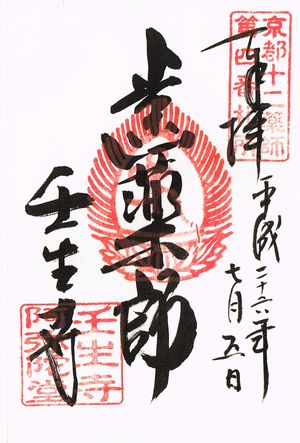 京都十二薬師
第四番
奉拝
平成二十六年
七月五日
歯薬師
壬生寺
壬生寺
阿弥陀堂